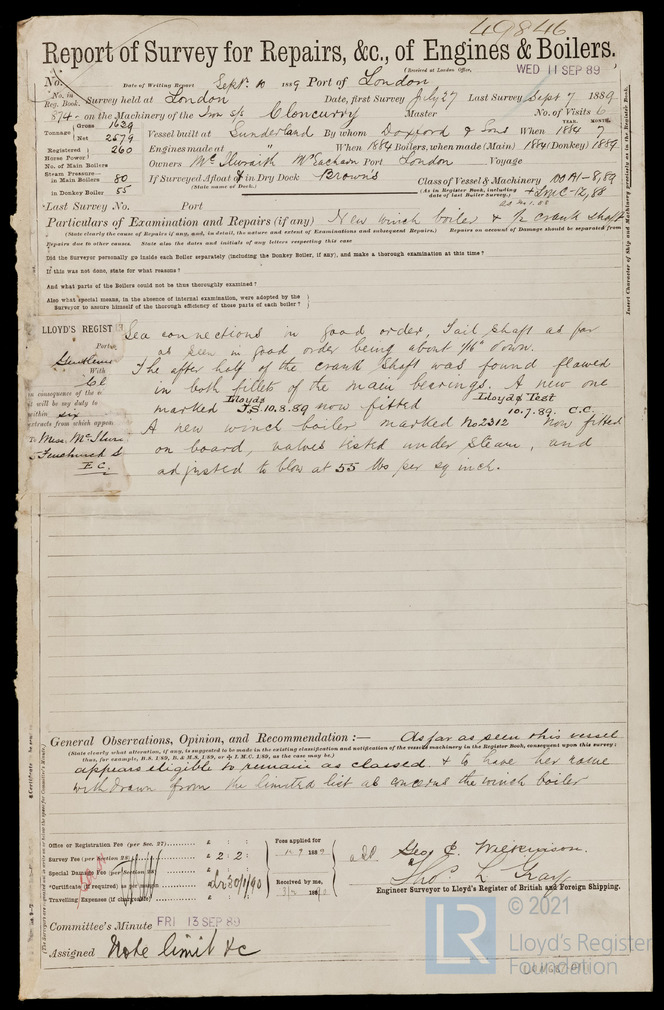 49846
Report of Survey for Repairs, &c., of Engines & Boilers.
(Received at London Office,
WED 11 SEP 89
No. Date of Writing Report Septr. 10 1889 Port of London
No. in Reg. Book. Survey held at London Date, first Survey July 27 Last Survey Sept 7 1889
874 on the Machinery of the Iron s/s Cloncurry Master No. of Visits 6
Tonnage Gross 1629 Net 2579 Vessel built at Sunderland By whom Doxford & Sons When YEAR. 1884 MONTH. 7
Registered Horse Power 260 Engines made at " When 1884 Boilers, when made (Main) 1884 (Donkey) 1889
No. of Main Boilers Owners Mc Ilwraith McEacharn Port London Voyage
Steam Pressure— in Main Boilers 80 If Surveyed Afloat & in Dry Dock Brown's Class of Vessel & Machinery 100 A1 - 8,89
in Donkey Boiler 55 (State name of Dock.) (As in Register Book, including date of last Boiler Survey.) + LMC-12,88
Last Survey No. Port
Particulars of Examination and Repairs (if any) New winch boiler & 1/2 crank shaft
(State clearly the cause of Repairs if any, and, in detail, the nature and extent of Examinations and subsequent Repairs.) Repairs on account of Damage should be separated from
Repairs due to other causes. State also the dates and initials of any letters respecting this case
Did the Surveyor personally go inside each Boiler separately (including the Donkey Boiler, if any), and make a thorough examination at this time?
If this was not done, state for what reasons?
And what parts of the Boilers could not be thus thoroughly examined?
Also what special means, in the absence of internal examination, were adopted by the
Surveyor to assure himself of the thorough efficiency of those parts of each boiler?
Insert Character of Ship and Machinery precisely as in the Register Book.
LLOYD'S REGIST
Gentlemen
With
in consequence of the
will be my duty to
within six
extracts from which appear
To Mess. McIlwr
Fenchurch S
E.C.
Sea connections in good order, Tail shaft as far
as seen in good order being about 1/16" down.
The after half of the crank shaft was found flawed
in both fillets of the main bearings. A new one
marked Lloyds J.S. 10.8.89 now fitted Lloyds Test
10.7.89. C.C.
A new winch boiler marked No 2312 now fitted
on board, valves tested under steam, and
adjusted to blow at 55 lbs per sq inch.
General Observations, Opinion, and Recommendation :— As far as seen this vessel
(State clearly what alteration, if any, is suggested to be made in the existing classification and notification of the vessel's machinery in the Register Book, consequent upon this survey;
thus, for example, B.S. 1/89, B. & M.S. 1/89, or L.M.C. 1/89, as the case may be.)
appears eligible to remain as classed & to have her name
withdrawn from the limited list as concerns the winch boiler
Office or Registration Fee (per Sec. 27) £ : : Fees applied for
Survey Fee (per Section 28) £ 2 : 2 :
Special Damage Fee (per Section 28) £ : :
*Certificate (if required) as per margin Received by me,
Travelling Expenses (if chargeable) £ : :
Geo. C. Wilkinson.
Thos. L. Gray
Engineer Surveyor to Lloyd's Register of British and Foreign Shipping.
Committee's Minute FRI 13 SEP 89
Assigned Note limit &c
LR © 2021
Lloyd's Register
Foundation